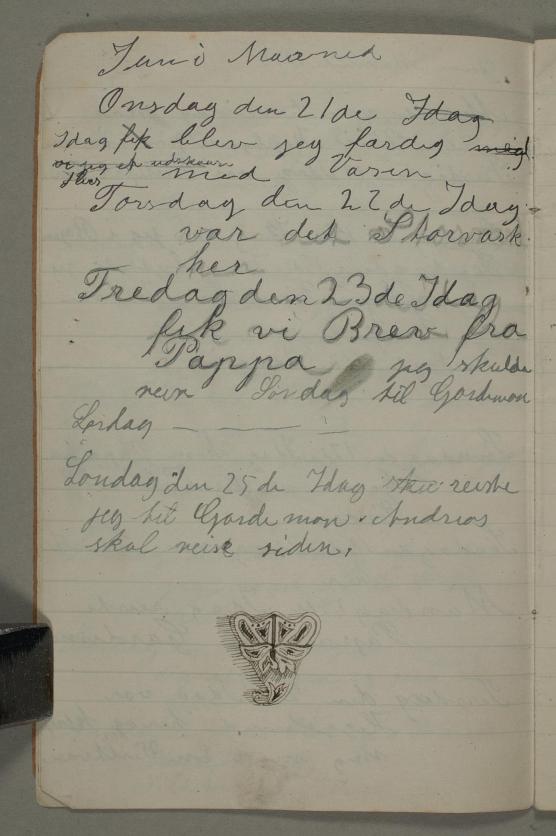 Juni Maaned
Onsdag den 21de Idag
Idag fik blev jeg færdig mig
vi jeg et udskaar
med Vasen
Torsdag den 22de Idag
var det Storvask
her
Fredag den 23de Idag
fik vi Brev fra
Pappa jeg skulde
reise Søndag til Gardemon
Lørdag — — —
Søndag den 25de Idag reiste
jeg til Gardemon. Andreas
skal reise siden.